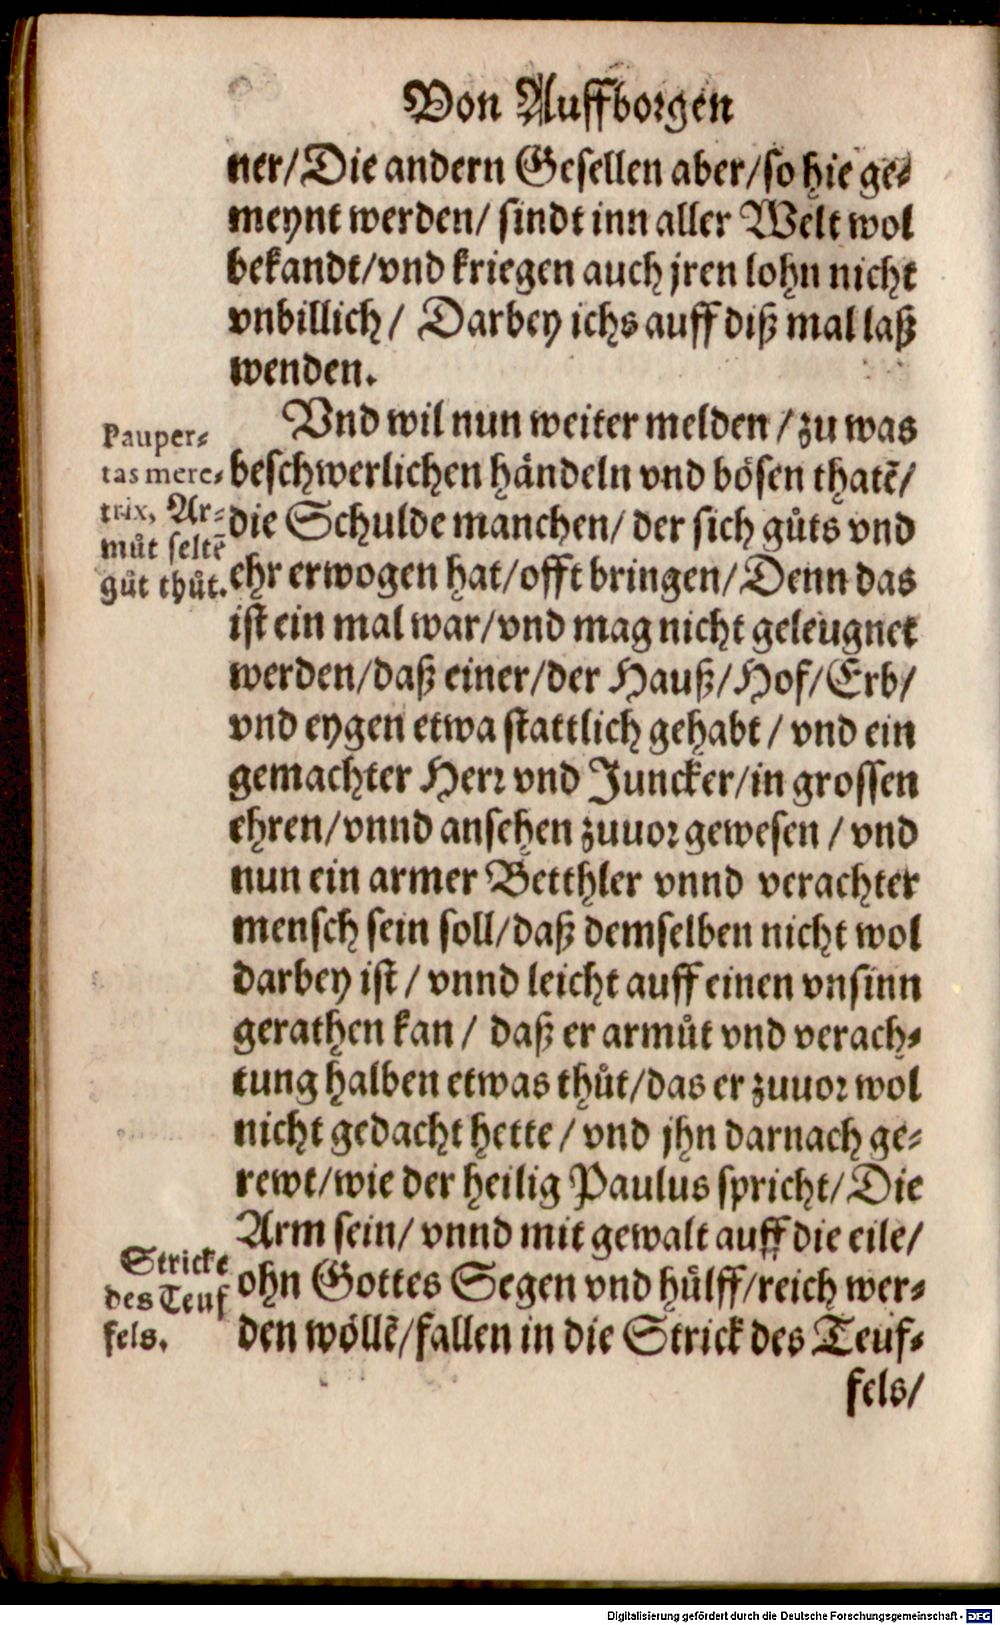 Von Auffborgen
ner/Die andern Gesellen aber/so hie ge-
meynt werden/ sindt inn aller Welt wol
bekandt/vnd kriegen auch jren lohn nicht
vnbillich/ Darbey ichs auff diß mal laß
wenden.
Vnd wil nun weiter melden/zu was
beschwerlichen händeln vnd bösen thatẽ/
die Schulde manchen/ der sich gůts vnd
ehr erwogen hat/offt bringen/Denn das
ist ein mal war/vnd mag nicht geleugnet
werden/daß einer/der Hauß/Hof/Erb/
vnd eygen etwa stattlich gehabt/ vnd ein
gemachter Herr vnd Juncker/in grossen
ehren/vnnd ansehen zuuor gewesen/ vnd
nun ein armer Betthler vnnd verachter
mensch sein soll/daß demselben nicht wol
darbey ist/ vnnd leicht auff einen vnsinn
gerathen kan/ daß er armůt vnd verach-
tung halben etwas thůt/das er zuuor wol
nicht gedacht hette/ vnd jhn darnach ge-
rewt/wie der heilig Paulus spricht/Die
Arm sein/ vnnd mit gewalt auff die eile/
ohn Gottes Segen vnd hülff/reich wer-
den wöllẽ/fallen in die Strick des Teuf-
fels/
Pauper-
tas mere-
trix, Ar-
můt seltẽ
gůt thůt.
Stricke
des Teuf
fels.
Digitalisierung gefördert durch die Deutsche Forschungsgemeinschaft - DFG